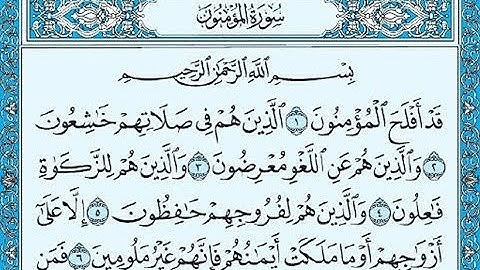 سُورَةُ المُؤْمِنُونَ
بِسْمِ اللَّهِ الرَّحْمَٰنِ الرَّحِيمِ
قَدْ أَفْلَحَ الْمُؤْمِنُونَ ١ الَّذِينَ هُمْ فِي صَلَاتِهِمْ خَاشِعُونَ
٢ وَالَّذِينَ هُمْ عَنِ اللَّغْوِ مُعْرِضُونَ ٣ وَالَّذِينَ هُمْ لِلزَّكَوٰةِ
فَاعِلُونَ ٤ وَالَّذِينَ هُمْ لِفُرُوجِهِمْ حَافِظُونَ ٥ إِلَّا عَلَىٰ
أَزْوَاجِهِمْ أَوْ مَا مَلَكَتْ أَيْمَانُهُمْ فَإِنَّهُمْ غَيْرُ مَلُومِينَ ٦ فَمَنِ